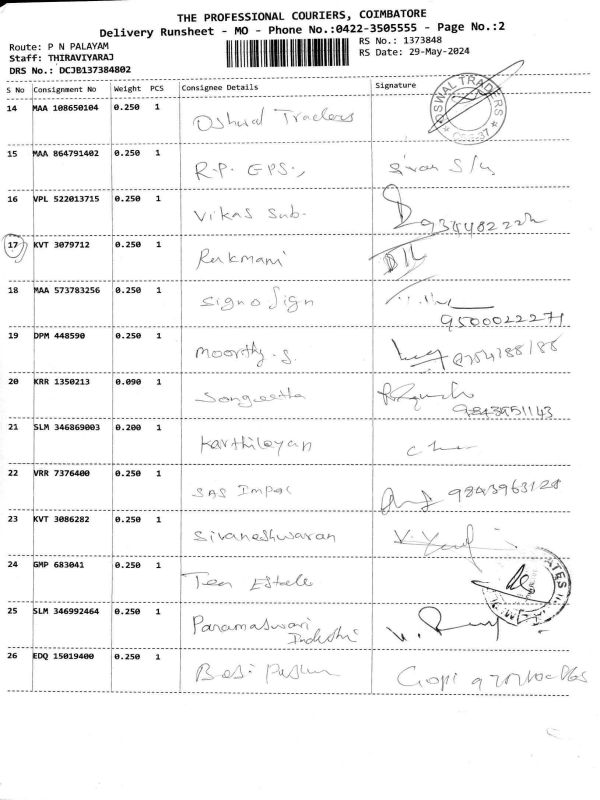 THE PROFESSIONAL COURIERS, COIMBATORE
Delivery Runsheet - MO - Phone No.:0422-3505555 - Page No.:2
Route: P N PALAYAM
RS No.: 1373848
Staff: THIRAVIYARAJ
RS Date: 29-May-2024
DRS No.: DCJB137384802
S No Consignment No Weight PCS Consignee Details Signature
14 MAA 108650104 0.250 1 Oshwal Traders OSWAL TRADERS
15 MAA 864791402 0.250 1 R.P. GPS.,
16 VPL 522013715 0.250 1 Vikas Sub.
17 KVT 3079712 0.250 1 Rukmani
18 MAA 573783256 0.250 1 Signo Sign
9500022271
19 DPM 448590 0.250 1 Moorthy.S.
20 KRR 1350213 0.090 1 Sangeetha
9843951143
21 SLM 346869003 0.200 1 Karthikeyan
22 VRR 7376400 0.250 1 SAS Impex 9843963128
23 KVT 3086282 0.250 1 Sivaneshwaran
24 GMP 683041 0.250 1 Tea Estate
25 SLM 346992464 0.250 1 Parameswari
Industri
26 EDQ 15019400 0.250 1 Gopi